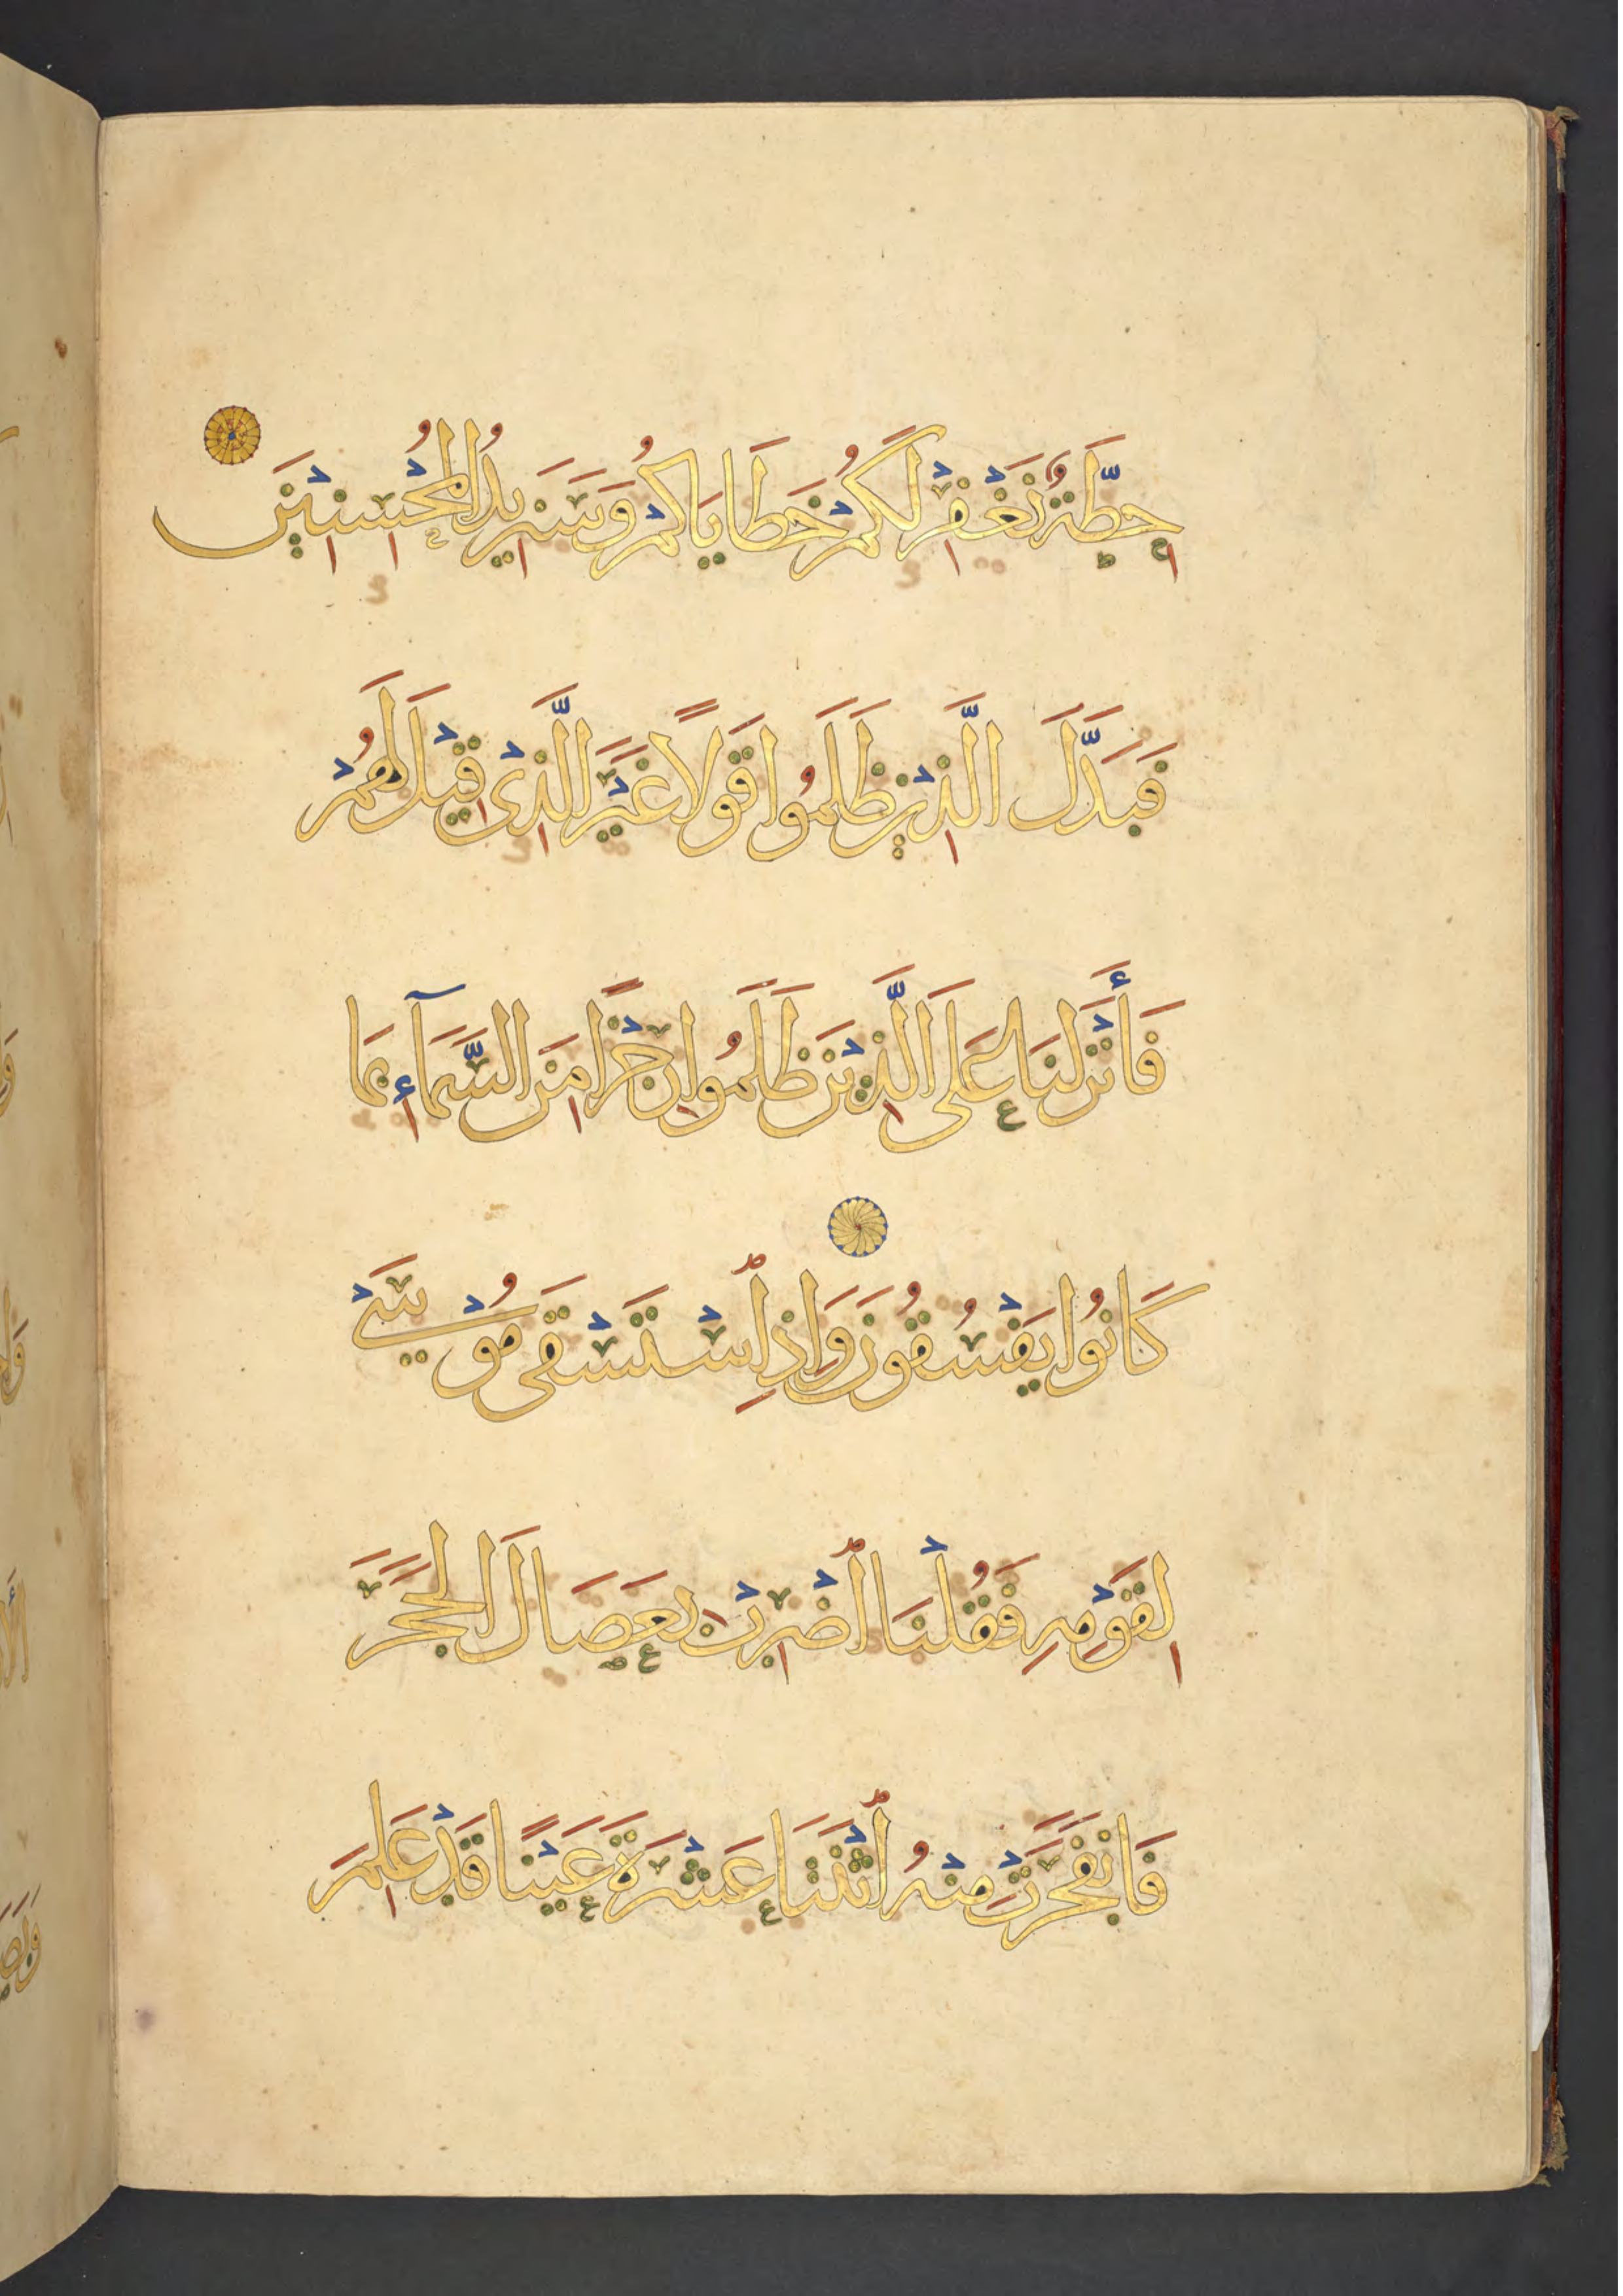 حِطَّةٌ نَغْفِرْ لَكُمْ خَطَايَاكُمْ وَسَنَزِيدُ الْمُحْسِنِينَ
فَبَدَّلَ الَّذِينَ ظَلَمُوا قَوْلًا غَيْرَ الَّذِى قِيلَ لَهُمْ
فَأَنْزَلْنَا عَلَى الَّذِينَ ظَلَمُوا رِجْزًا مِنَ السَّمَآءِ بِمَا
كَانُوا يَفْسُقُونَ وَإِذِ اسْتَسْقَى مُوْسَىٰ
لِقَوْمِهِ فَقُلْنَا اضْرِبْ بِعَصَاكَ الْحَجَرَ
فَانْفَجَرَتْ مِنْهُ اثْنَتَا عَشْرَةَ عَيْنًا قَدْ عَلِمَ